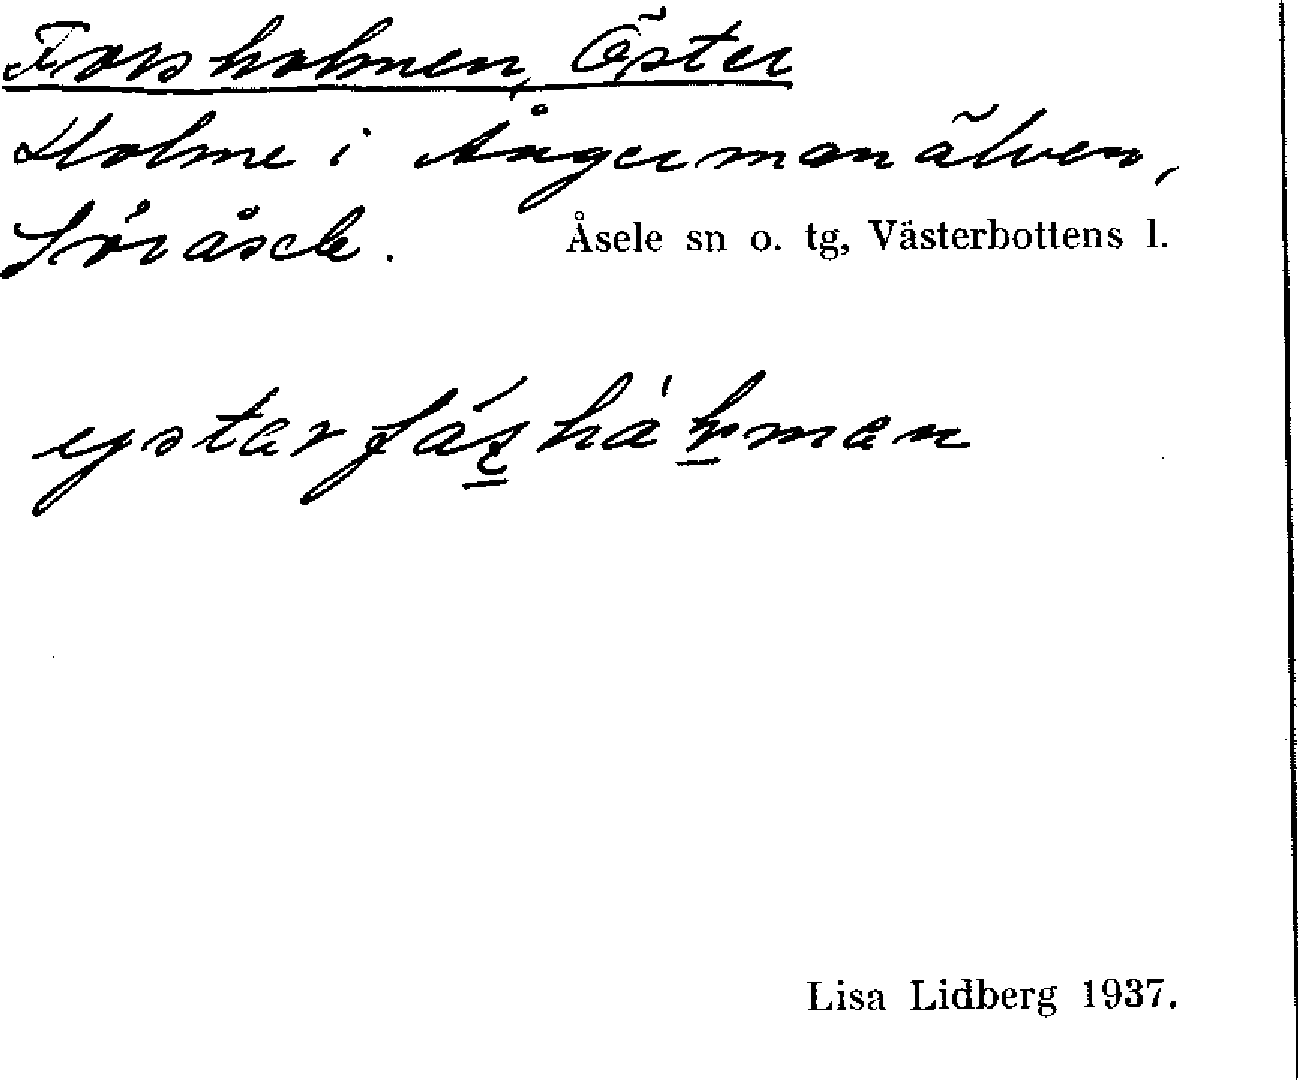 Forsholmen, Öster
Holme i Ångermanälven,
Söråsele. Åsele sn o. tg, Västerbottens l.
Lisa Lidberg 1937.